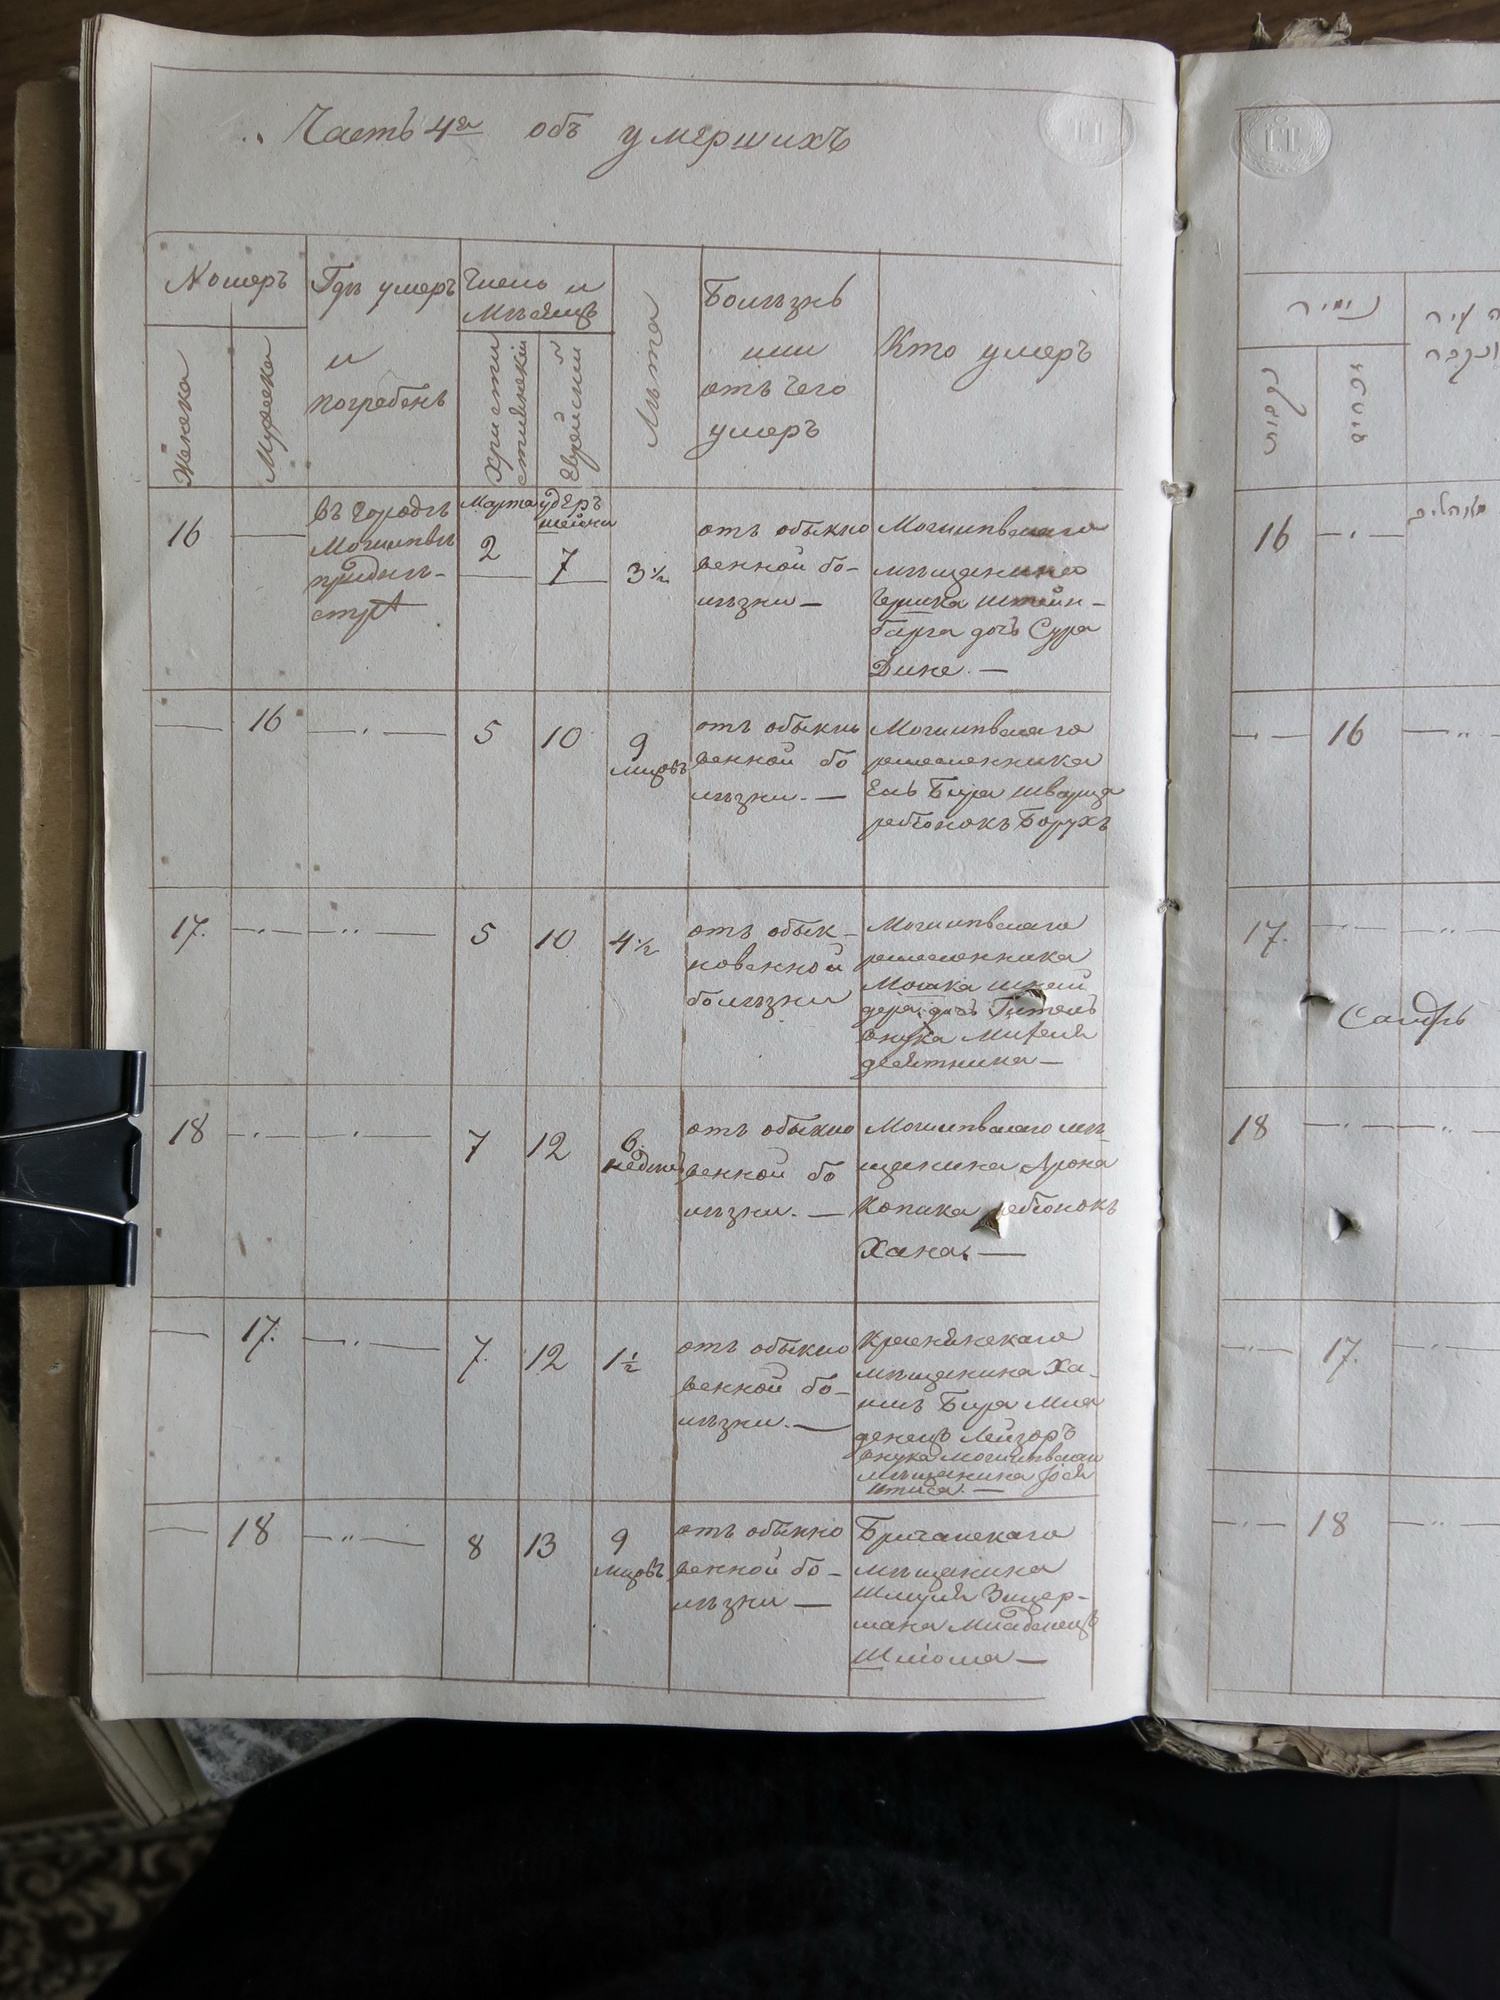 Часть 4я объ умершихъ
Номеръ
Женска
Мужеска
Гдѣ умеръ
и
погребенъ
Число и
Мѣсяцъ
Христи
стіянскій
Еврейскій
Лѣта
Болѣзнь
или
отъ чего
умеръ
Кто умеръ
16
въ городѣ
Могилевѣ
приднѣ-
стрѣ
Марта
2
удеръ
шейни
7
3 ½
отъ обыкно
венной бо-
лѣзни —
Могилевскаго
мѣщанина
Гершка Штейн-
барга дочь Сура
Дине. —
16
5
10
9
мцовъ
отъ обыкно
венной бо
лѣзни. —
Могилевскаго
ремесленника
Ель Бира Шварца
ребіонокъ Борухъ
17.
5
10
4 ½
отъ обык-
новенной
болѣзни
Могилевскаго
ремесленника
Мошка Шней
дера дочь Гитель
внука
десятника —
18
7
12
6.
недель
отъ обыкно
венной бо
лѣзни. —
Могилевскаго мѣ-
щанина Арона
Копика ребіонокъ
Хана. —
17.
7.
12
1 ½
отъ обыкно
венной бо-
лѣзни. —
мѣщанина Ха-
имъ Бира Мла
денецъ Лейзоръ
внука Могилевскаго
мѣщанина Іося
18
8
13
9
мцовъ
отъ обыкно
венной бо-
лѣзни —
Бричанскаго
мѣщанина
Шмуля Зицер-
мана Младенецъ
Шліома —
16
16
17.
18
17.
18